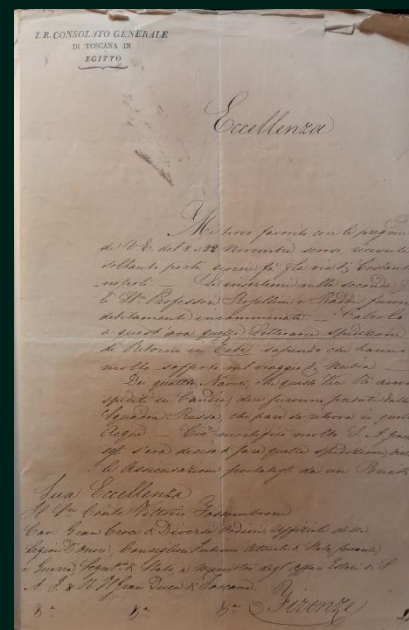 I. R. CONSOLATO GENERALE
DI TOSCANA IN
EGITTO
Eccellenza
Mi trovo favorito con le pregiate
di V. E. del 8 e 22 Novembre scorso, ricevute
soltanto pochi giorni fà
nopoli — inserte nella seconda
Professor Rosellini e Raddi furono
debitamente incamminate —
a quest'ora quella Letteraria spedizione
di Ritorno in Tebe sapendo che hanno
molto sofferto nel viaggio di Nubia —
Dei quattro Navi, che questo Vice Rè aveva
spediti in Candia, due furono predati dalla
Squadra Russa, che pare si ritrova in quelle
Acque — Ciò mortificò molto S. A.
egli s'era deciso di fare quella spedizione
le Assicurazioni portategli da un
Sua Eccellenza
Il Conte Vittorio Fossombroni
Cav. Gran Croce di Diversi Ordini Uffiziale della
Legion d'Onore, Consigliere Intimo Attuale di Stato, Finanze
e Guerra, Segret. di Stato, e Ministro degli Affari Esteri di S.
A. I. & R. Il Gran Duca di Toscana
Firenze